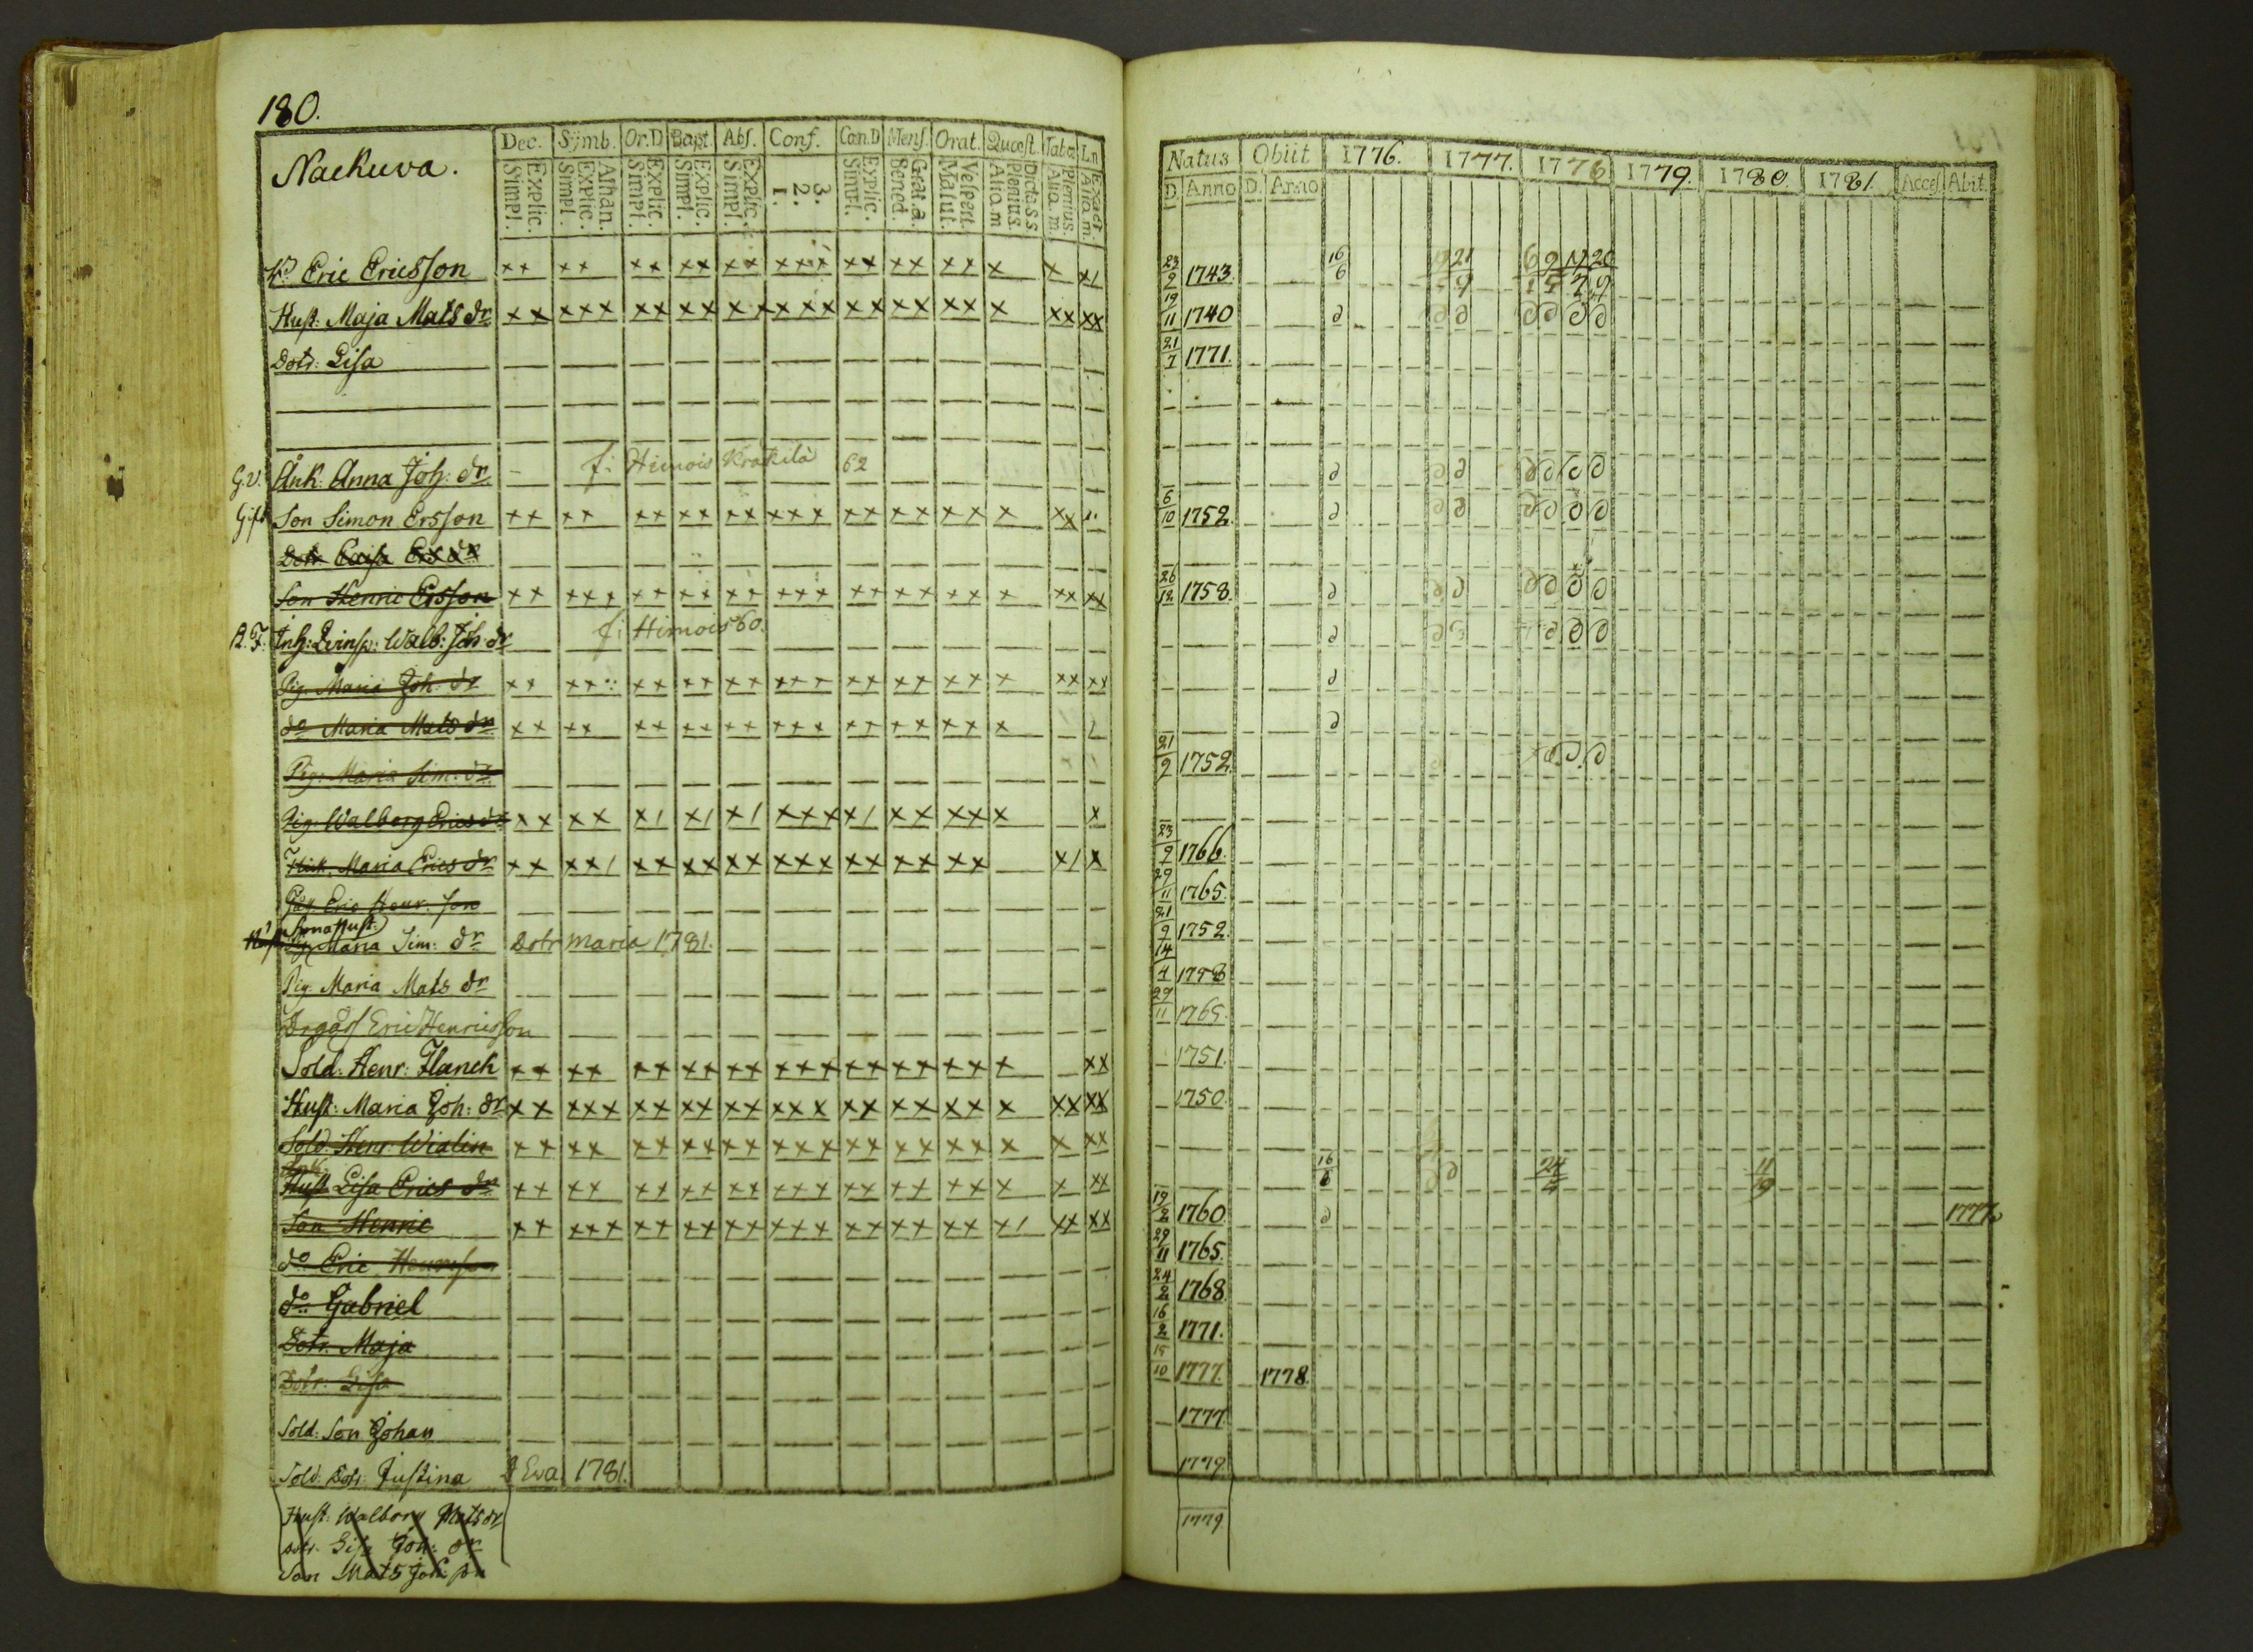 180.
Nackuva. Dec. Symb. Or.D Bapt. Abs. Conf. Can.D Mens. Orat. Quæst. Tabœ L.n
Explic. Simpl. Athan. Explic. Simpl. Explic. Simpl. Explic. Simpl. Explic. Simpl. 3. 2. 1. Explic. Simpl. Grat.a. Bened. Vespert. Matut. Dicta.S.S Plenius. Aliq.m Plenius. Aliq.m. Exact Aliq.m.
Eric Ericsson ×× ×× ×× ×× ×× ××× ×× ×× ×× × × ×/
Hust: Maja Mats dr ×× ××× ×× ×× ×× ××× ×× ×× ×× × ×× ××
Dotr: Lisa
G.V. Enk: Anna Joh: dr f: Himois Kråkilä 62
Gift Son Simon Ersson ×× ×× ×× ×× ×× ××× ×× ×× ×× × ××
Dotr Caisa Ers dr
Son Henric Ersson ×× ××× ×× ×× ×× ××× ×× ×× ×× × ×× ××
Inh: Walb: Joh dr f: Himois 60.
Pig. Maria Joh: dr ×× ×× ×× ×× ×× ××× ×× ×× ×× × ×× ××
do Maria Mats dr ×× ×× ×× ×× ×× ××× ×× ×× ×× ×
Pig: Maria Sim: dr
Pig: Walborg Erics dr ×× ×× ×/ ×/ ×/ ××× ×/ ×× ×× × ×
Maria Erics dr ×× ××/ ×× ×× ×× ××× ×× ×× ×× ×/ ×
Eric Henr. son
Sona Hust:
Maria Sim: dr Dotr Maria 1781.
Pig. Maria Mats dr
Eric Henricsson
Sold: Henr: Flanck ×× ×× ×× ×× ×× ××× ×× ×× ×× × ××
Hust: Maria Joh: dr ×× ××× ×× ×× ×× ××× ×× ×× ×× × ×× ××
Sold: Henr: Wialin ×× ×× ×× ×× ×× ××× ×× ×× ×× × × ××
Hust Lisa Erics dr ×× ×× ×× ×× ×× ××× ×× ×× ×× × × ××
Son Henric ×× ××× ×× ×× ×× ××× ×× ×× ×× ×/ ×× ××
do Eric Henrsson
do: Gabriel
Dotr. Maja
Dotr: Lisa
Sold: Son Johan
Sold: Dotr: Justina D Ewa 1781.
Hust: Walborg Mats dr
Dotr. Lisa Joh: dr
Son Mats Joh: son
Natus Obiit 1776. 1777. 1778 1779. 1780. 1781. Acces. Abit.
D. Anno D. Anno
23/2 1743. 16/6
19/11 1740
21/7 1771.
6/10 1752.
26/12 1758.
21/9 1752
23/9 1766.
29/11 1765.
21/9 1752.
14/4 1758
29/11 1765.
1751.
1750.
16/6 24/4 11/9
19/2 1760 1777.
29/11 1765.
24/2 1768
16/2 1771.
15/10 1777. 1778.
1777
1779
1779